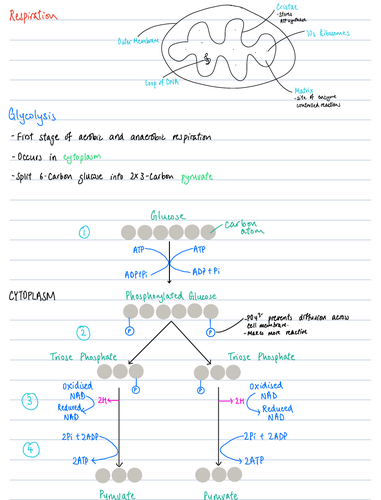 Respiration
Cristae
-Stores
ATP synthase
Outer Membrane
70s Ribosomes
Loop of DNA
Matrix
-Site of enzyme
controlled reactions
Glycolysis
-First stage of aerobic and anaerobic respiration
-Occurs in cytoplasm
-Split 6-Carbon glucose into 2x3-Carbon pyruvate
Glucose
① Carbon
atom
ATP ATP
ADP+Pi ADP+Pi
CYTOPLASM Phosphorylated Glucose
P P
-PO4²⁻ prevents diffusion across
cell membrane.
-Makes more reactive
②
Triose Phosphate Triose Phosphate
P P
Oxidised Oxidised
NAD NAD
③ 2H 2H
Reduced Reduced
NAD NAD
④ 2Pi + 2ADP 2Pi + 2ADP
2ATP 2ATP
Pyruvate Pyruvate